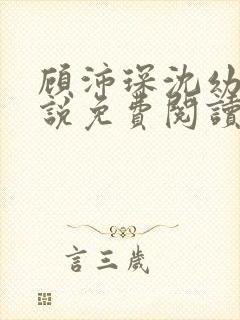 顧沛琛沈幼
說免費閱讀
言三歲